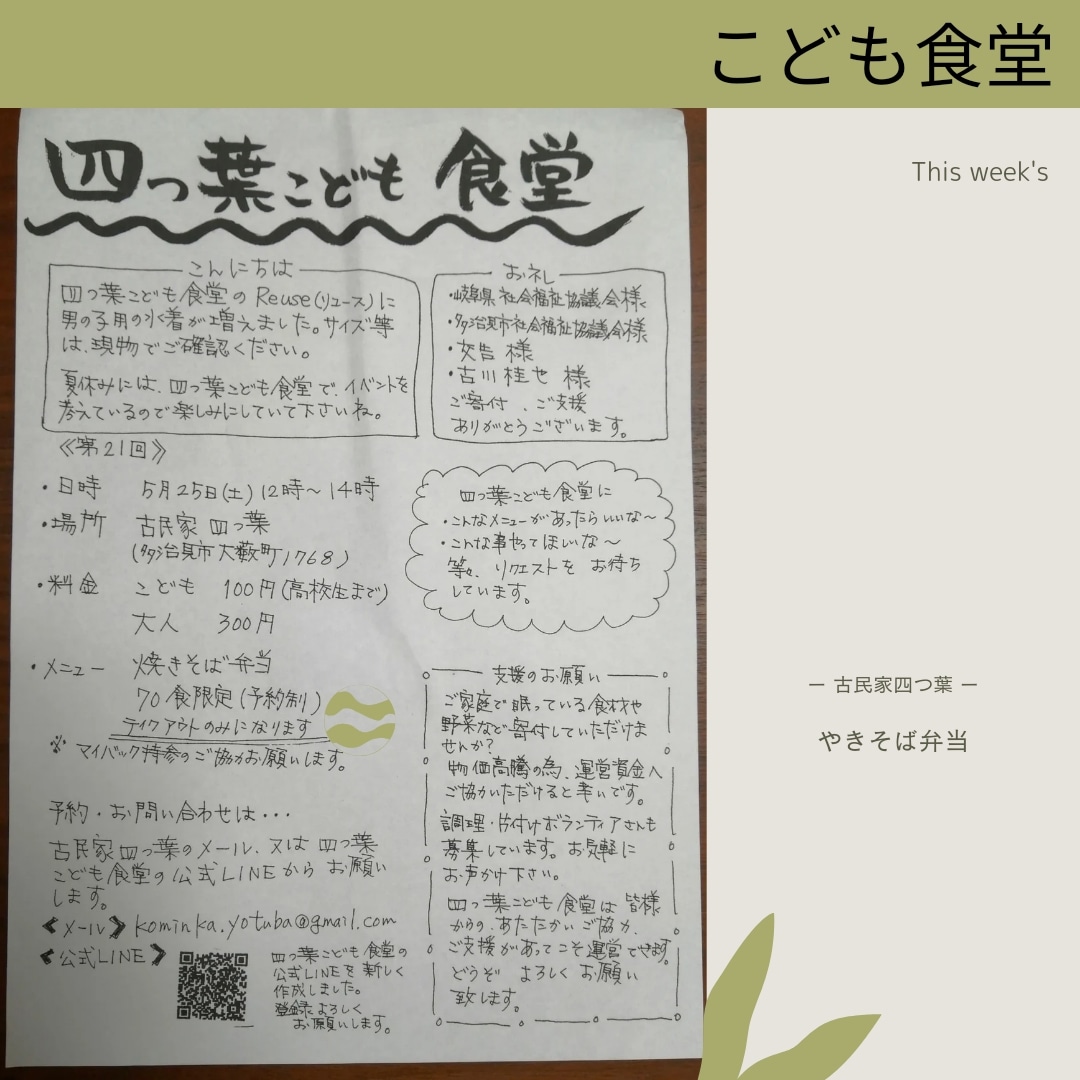 こども食堂
This week's
四つ葉こども食堂
こんにちは
四つ葉こども食堂の Reuse(リユース)に
男の子用の水着が増えました。サイズ等
は、現物でご確認ください。
夏休みには、四つ葉こども食堂で、イベントを
考えているので楽しみにしていて下さいね。
お礼
・岐阜県社会福祉協議会様
・多治見市社会福祉協議会様
・安告 様
・古川桂せ 様
ご寄付、ご支援
ありがとうございます。
《第21回》
・日時 5月25日(土)12時〜14時
・場所 古民家 四つ葉
(多治見市大薮町1768)
・料金 こども 100円(高校生まで)
大人 300円
・メニュー 焼きそば弁当
70食限定(予約制)
テイクアウトのみになります
※ マイバック持参のご協力お願いします。
四つ葉こども食堂に
・こんなメニューがあったらいいな〜
・こんな事やってほしいな〜
等々、リクエストを お待ち
しています。
予約・お問い合わせは・・・
古民家四つ葉のメール、又は 四つ葉
こども食堂の公式LINEから お願い
します。
《メール》kominka.yotuba@gmail.com
《公式LINE》
四つ葉こども食堂の
公式LINEを新しく
作成しました。
登録よろしく
お願いします。
支援のお願い
ご家庭で眠っている食材や
野菜など寄付していただけま
せんか?
物価高騰の為、運営資金へ
ご協力いただけると幸いです。
調理・片付けボランティアさんも
募集しています。お気軽に
お声かけ下さい。
四つ葉こども食堂は 皆様
からの、あたたかい ご協力、
ご支援があってこそ運営できます。
どうぞ よろしく お願い
致します。
ー 古民家四つ葉 ー
やきそば弁当